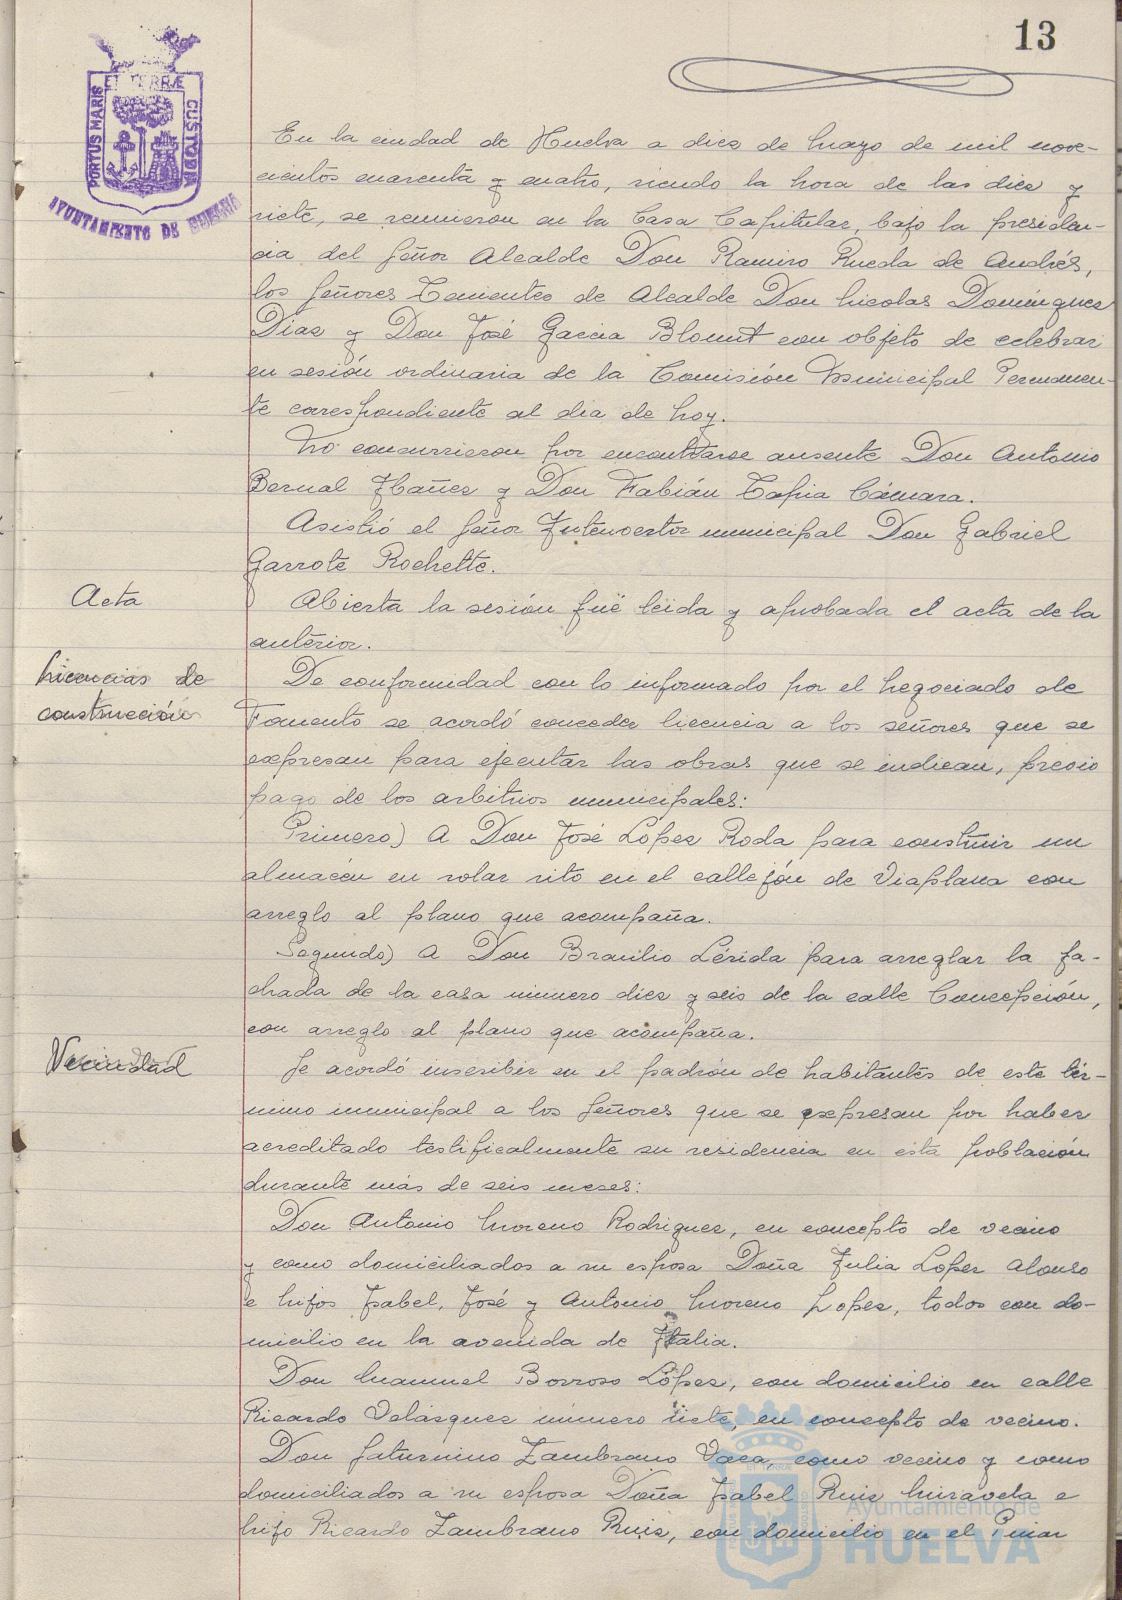 13
PORTUS MARIS ET TERRÆ CUSTODIA
AYUNTAMIENTO DE HUELVA
En la ciudad de Huelva a diez de Mayo de mil nove-
cientos cuarenta y cuatro, siendo la hora de las diez y
siete, se reunieron en la Casa Capitular, bajo la presiden-
cia del Señor Alcalde Don Ramiro Rueda de Andrés,
los Señores Tenientes de Alcalde Don Nicolas Domínguez
Díaz y Don José Garcia Blount con objeto de celebrar
en sesión ordinaria de la Comisión Municipal Permanen-
te correspondiente al dia de hoy.
No concurrieron por encontrarse ausente Don Antonio
Bernal Ibañez y Don Fabián Tapia Cámara.
Asistió el Señor Interventor municipal Don Gabriel
Garrote Rochette.
Acta
Abierta la sesión fué leida y aprobada el acta de la
anterior.
Licencias de
construcción
De conformidad con lo informado por el Negociado de
Fomento se acordó conceder licencia a los señores que se
expresan para ejecutar las obras que se indican, previo
pago de los arbitrios municipales:
Primero) A Don José López Roda para construir un
almacén en solar sito en el callejón de Viaplana con
arreglo al plano que acompaña.
Segundo) A Don Braulio Lérida para arreglar la fa-
chada de la casa número diez y seis de la calle Concepción,
con arreglo al plano que acompaña.
Vecindad
Se acordó inscribir en el padrón de habitantes de este tér-
mino municipal a los Señores que se expresan por haber
acreditado testificalmente su residencia en esta población
durante más de seis meses:
Don Antonio Moreno Rodriguez, en concepto de vecino
y como domiciliados a su esposa Doña Julia Lopez Alonso
e hijos Isabel, José y Antonio Moreno Lopez, todos con do-
micilio en la avenida de Italia.
Don Manuel Borroso López, con domicilio en calle
Ricardo Velásquez número siete, en concepto de vecino.
Don Saturnino Zambrano Vaca, como vecino y como
domiciliados a su esposa Doña Isabel Ruiz e
hijo Ricardo Zambrano Ruiz, con domicilio en el Pinar
Ayuntamiento de
HUELVA